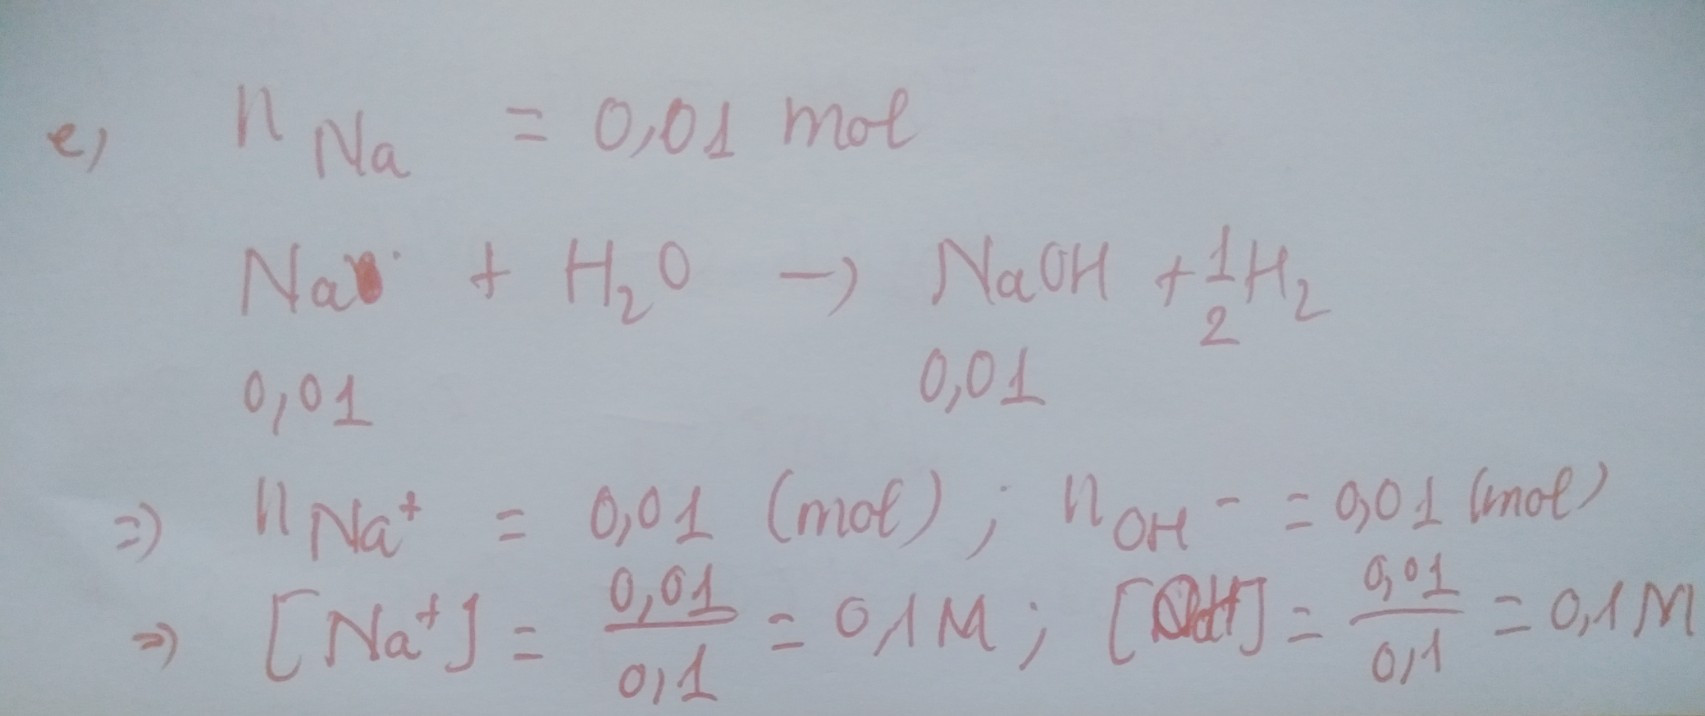 e) n Na = 0,01 mol
Na + H₂O → NaOH + 1/2 H₂
0,01 0,01
⇒) n Na⁺ = 0,01 (mol) ; n OH⁻ = 0,01 (mol)
⇒) [Na⁺] = 0,01/0,1 = 0,1M ; [OH] = 0,01/0,1 = 0,1M